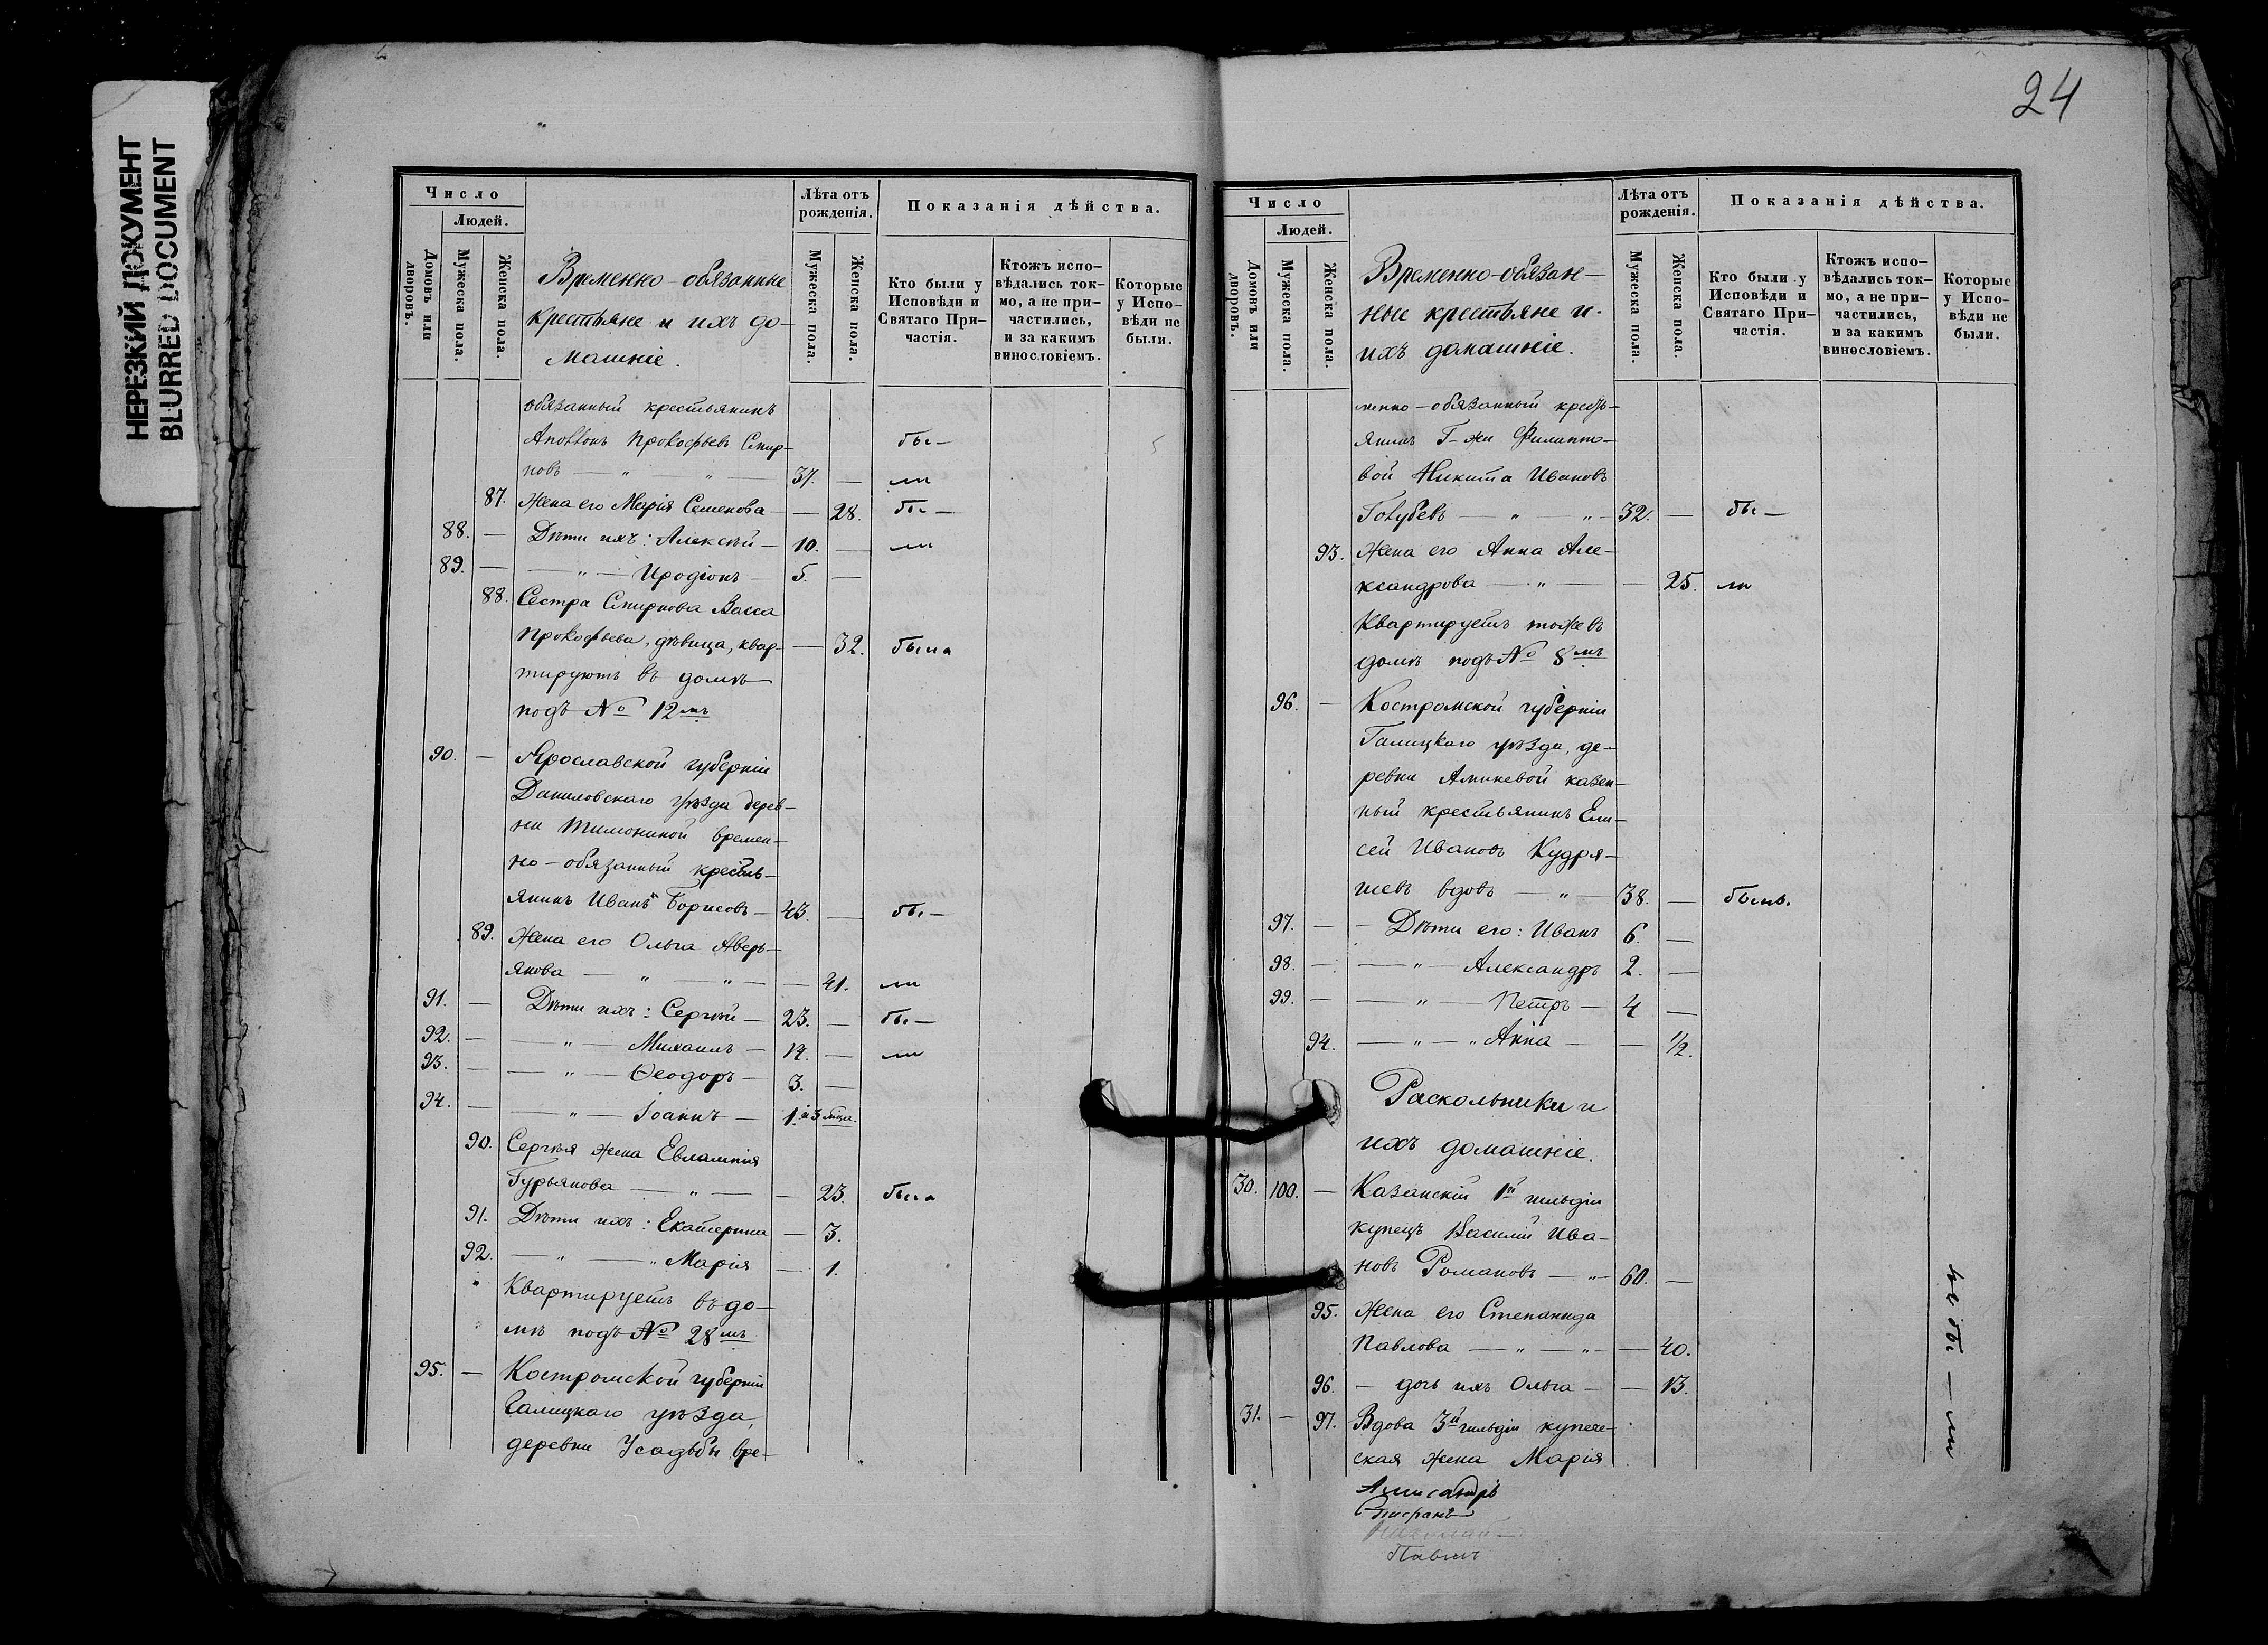 НЕРЕЗКИЙ ДОКУМЕНТ
BLURRED DOCUMENT
24
Число
Людей.
Домовъ или дворовъ.
Мужеска пола.
Женска пола.
Временно-обязанные
крестьяне и ихъ до-
машніе.
Лѣта отъ рожденія.
Мужеска пола.
Женска пола.
Показанія дѣйства.
Кто были у Исповѣди и Святаго При-частія.
Ктожъ испо-вѣдались ток-мо, а не при-частились, и за какимъ винословіемъ.
Которые у Испо-вѣди не были.
обязанный крестьянинъ
Аполлонъ Прокофьевъ Смир- бы-
новъ — „ — „ — 37. — ли
87. Жена его Марія Семенова — — 28. бы-
88. — Дѣти ихъ: Алексѣй — 10. — ли
89. — — „ — Иродіонъ — 5. —
88. Сестра Смирнова Васса
Прокофьева, дѣвица, квар- — 32. была
тируютъ въ домѣ
подъ № 12мъ
90. — Ярославской губерніи
Даниловскаго уѣзда дерев-
ни Тимониной времен-
но-обязанный кресть-
янинъ Иванъ Борисовъ — 43. — бы-
89. Жена его Ольга Аверь-
янова — „ — „ — — 41. ли
91. — Дѣти ихъ: Сергѣй — 23. — бы-
92. — — „ — Михаилъ — 14. — ли
93. — — „ — Ѳеодоръ — 3. —
94. — — „ — Іоаннъ — 1. и 3 мѣца.
90. Сергѣя жена Евлампія
Гурьянова — „ — — 23. была
91. Дѣти ихъ: Екатерина — 3.
92. — „ — „ Марія — 1.
Квартируетъ въ до-
мѣ подъ № 28мъ
95. — Костромской губерніи
Галицкаго уѣзда,
деревни Усадьбы вре-
Число
Людей.
Домовъ или дворовъ.
Мужеска пола.
Женска пола.
Временно-обязан-
ные крестьяне и
ихъ домашніе.
Лѣта отъ рожденія.
Мужеска пола.
Женска пола.
Показанія дѣйства.
Кто были у Исповѣди и Святаго При-частія.
Ктожъ испо-вѣдались ток-мо, а не при-частились, и за какимъ винословіемъ.
Которые у Испо-вѣди не были.
менно-обязанный кресть-
янинъ Г-жи Филиппо-
вой Никита Ивановъ
Голубевъ — „ — „ — 32. — бы-
93. Жена его Анна Але-
ксандрова — „ — — 25. ли
Квартируетъ тоже въ
домѣ подъ № 8мъ
96. — Костромской губерніи
Галицкаго уѣзда, де-
ревни Аминевой казен-
ный крестьянинъ Ели-
сей Ивановъ Кудря-
шевъ вдовъ — „ — 38. — былъ.
97. — — Дѣти его: Иванъ 6. —
98. — — „ — Александръ 2. —
99. — — „ — Петръ — 4 —
94. — „ — „ Анна — — 1/2.
Раскольники и
ихъ домашніе.
30. 100. — Казанскій 1й гильдіи
купецъ Василій Ива-
новъ Романовъ — „ — 60. —
95. Жена его Степанида
Павлова — „ — „ — — 40.
96. — дочь ихъ Ольга — — 13.
31. — 97. Вдова 3й гильдіи купече-
ская жена Марія
не бы — ли
Павелъ